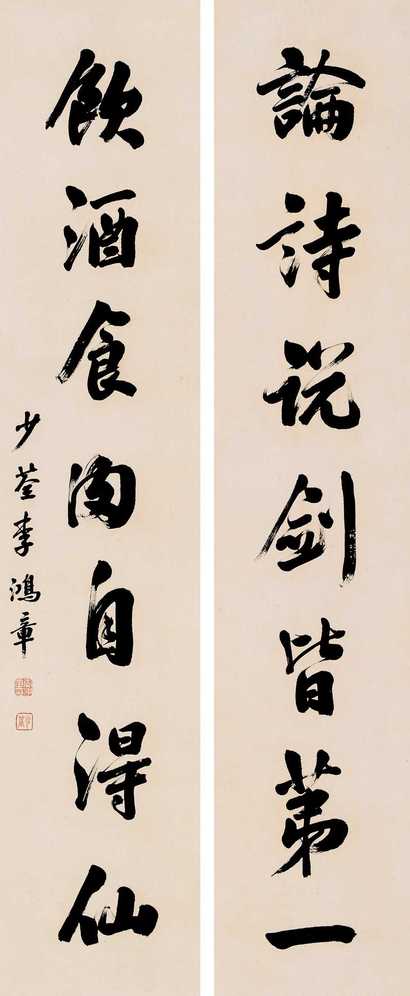 論詩説劍皆第一
飲酒食肉自得仙
少荃李鴻章